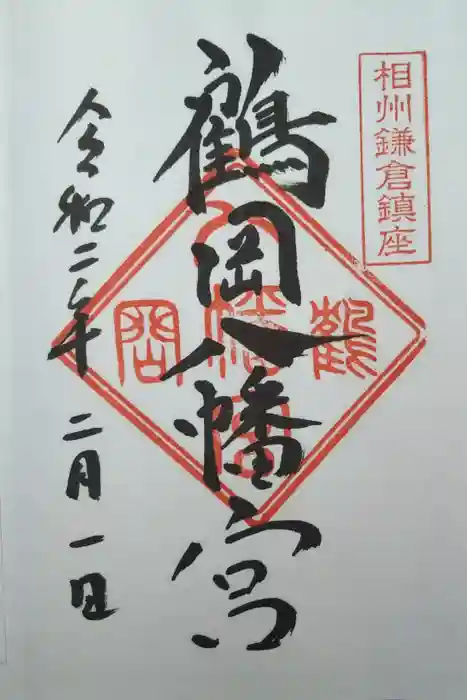 相州鎌倉鎮座
鶴岡八幡宮
鶴
八幡宮
岡
令和二年 二月一日